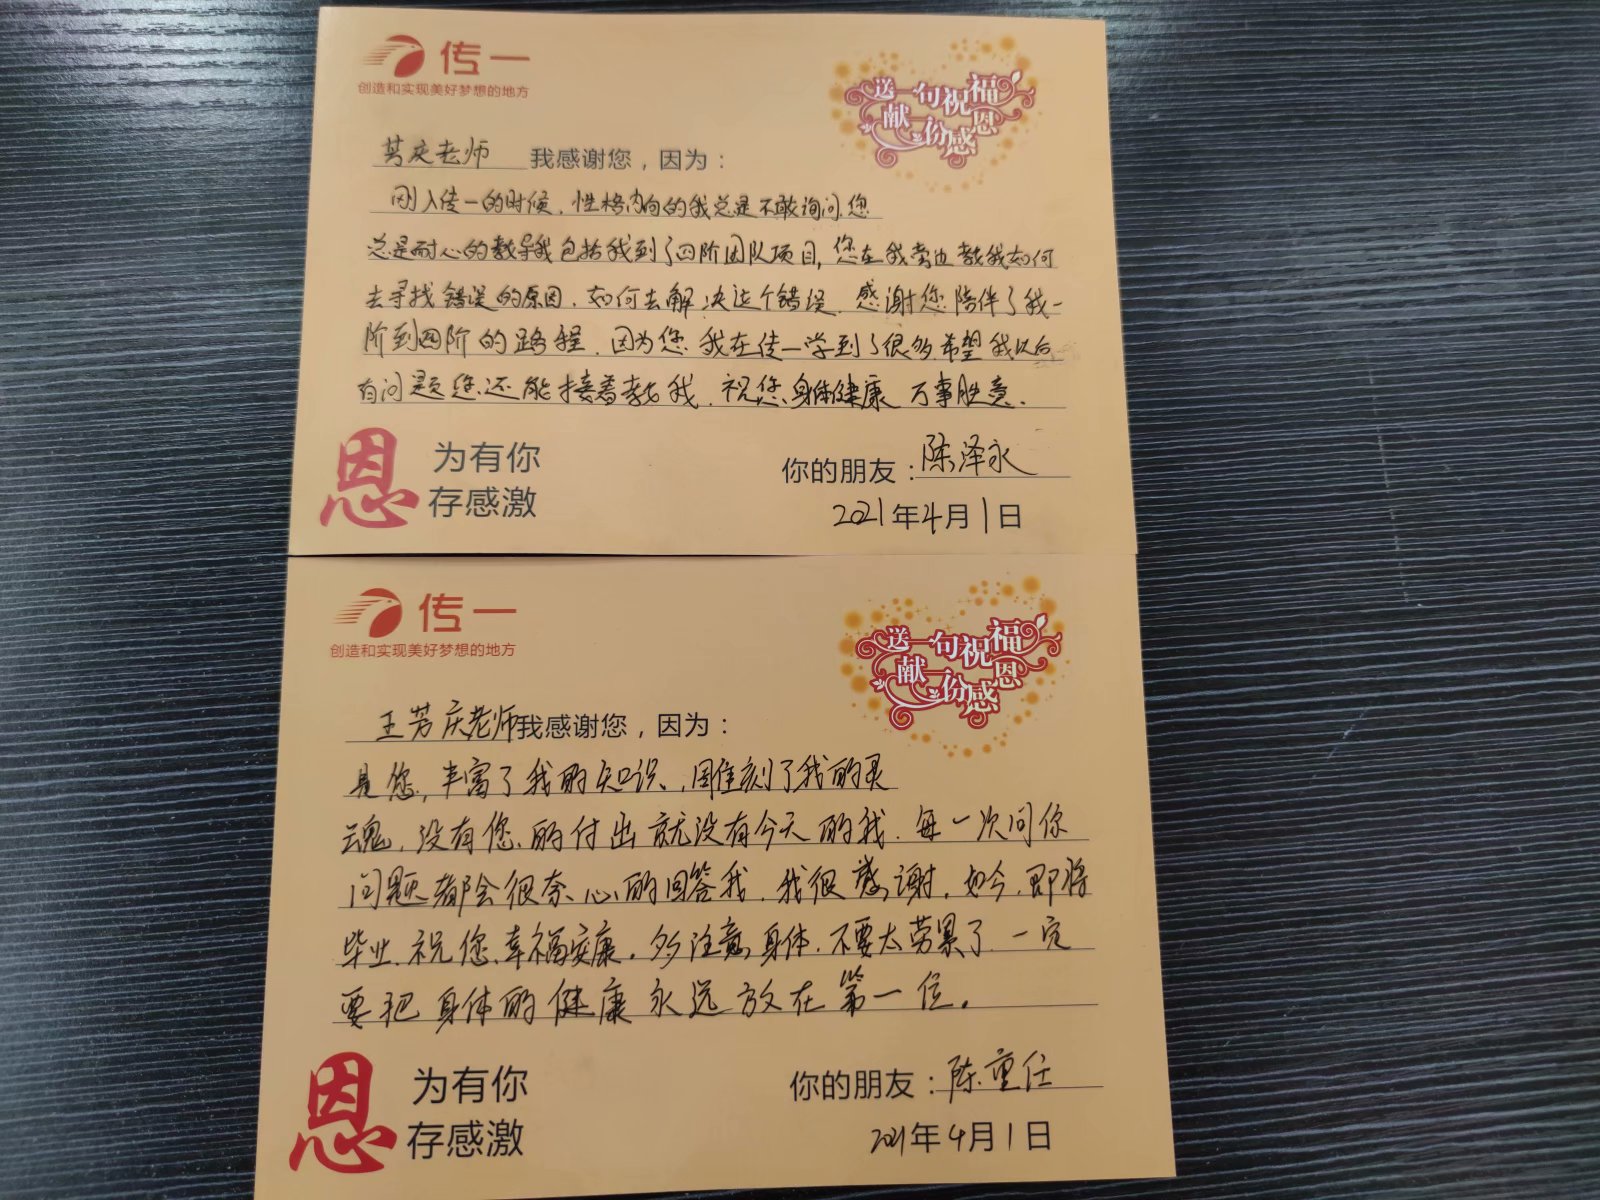 传一
创造和实现美好梦想的地方
送一句祝福
献一份感恩
芳庆老师 我感谢您，因为：
刚入传一的时候，性格内向的我总是不敢询问，您
总是耐心的教导我包括我到了四阶团队项目，您在我旁边教我如何
去寻找错误的原因，如何去解决这个错误，感谢您陪伴了我一
阶到四阶的路程，因为您，我在传一学到了很多希望我以后
有问题您还能接着教我，祝您身体健康 万事胜意.
恩
为有你
存感激
你的朋友：陈泽永
2021年4月1日
传一
创造和实现美好梦想的地方
送一句祝福
献一份感恩
王芳庆老师我感谢您，因为：
是您，丰富了我的知识、雕刻了我的灵
魂，没有您的付出就没有今天的我，每一次问你
问题都会很奈心的回答我，我很感谢，如今，即将
毕业，祝您幸福安康，多注意身体，不要太劳累了，一定
要把身体的健康永远放在第一位。
恩
为有你
存感激
你的朋友：陈重任
2021年4月1日